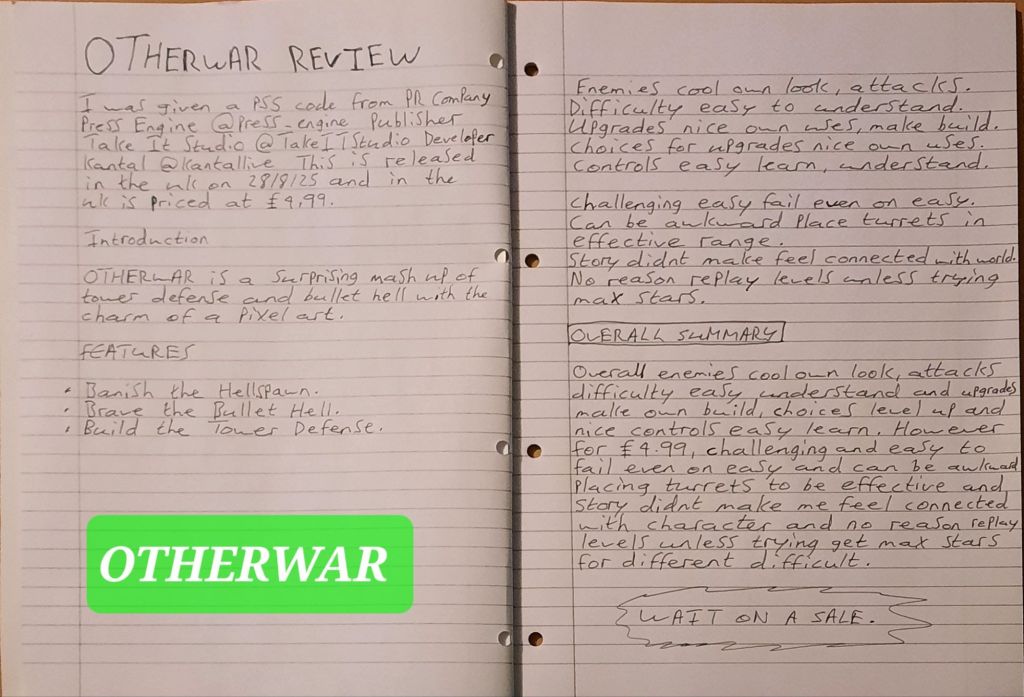 OTHERWAR REVIEW
I was given a PS5 code from PR Company
Press Engine @Press_engine Publisher
Take It Studio @TakeITStudio Developer
Kantal @Kantallive This is released
in the uk on 28/8/25 and in the
uk is priced at £4,99.
Introduction
OTHERWAR is a surprising mash up of
tower defense and bullet hell with the
charm of a Pixel art.
FEATURES
• Banish the Hellspawn.
• Brave the Bullet Hell.
• Build the Tower Defense.
OTHERWAR
Enemies cool own look, attacks.
Difficulty easy to understand.
Upgrades nice own uses, make build.
Choices for upgrades nice own uses.
Controls easy learn, understand.
Challenging easy fail even on easy.
Can be awkward Place turrets in
effective range.
Story didnt make feel connected with world.
No reason replay levels unless trying
max stars.
OVERALL SUMMARY
Overall enemies cool own look, attacks
difficulty easy understand and upgrades
make own build, choices level up and
nice controls easy learn. However
for £4.99, challenging and easy to
fail even on easy and can be awkward
Placing turrets to be effective and
Story didnt make me feel connected
with character and no reason replay
levels unless trying get max stars
for different difficult.
WAIT ON A SALE.